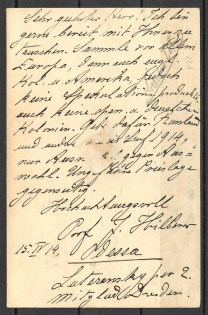 Sehr geehrter Herr! Ich bin
gerne bereit mit Ihnen zu
tauschen. Sammle vor allem
Europa, dann auch engl.
Kol. u. Amerika, jedoch
keine Spekulationsprodukte
auch keine span. u.
Kolonien. Gebe dafür Russland
und andere 1914,
nur gegen Aus-
wahl. Ung. keine
gegenseitig.
Hochachtungsvoll
Prof. J. Hilberr
15. IV 14. Odessa
Luteransky per 2.
Mitglied Dresden.